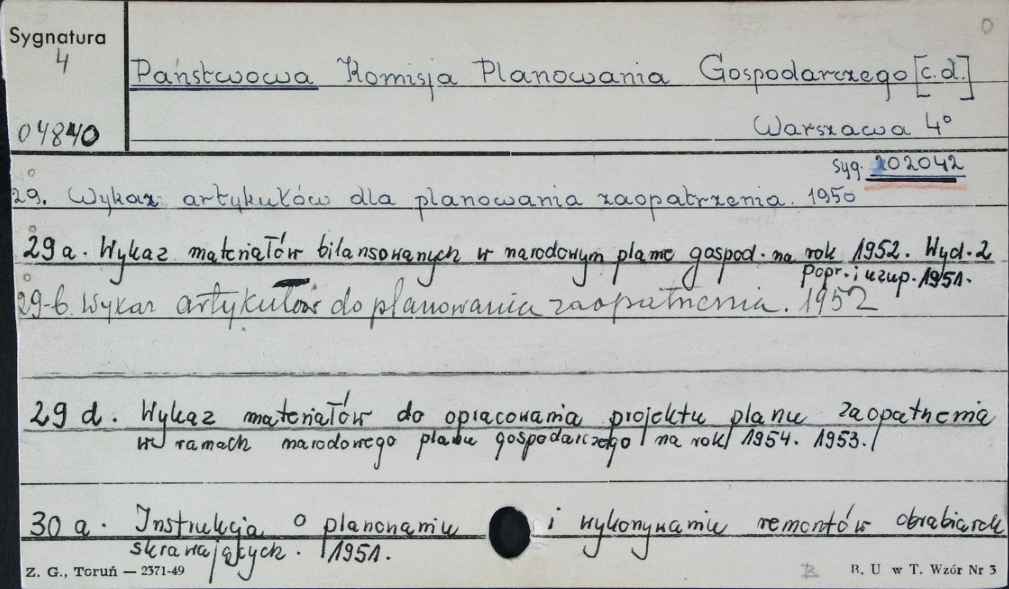 Sygnatura
4
04840
Państwowa Komisja Planowania Gospodarczego [c.d.]
Warszawa 4°
Syg. 202042
29. Wykaz artykułów dla planowania zaopatrzenia. 1950
29 a. Wykaz materiałów bilansowanych w narodowym planie gospod. na rok 1952. Wyd. 2
popr. i uzup. 1951.
29-b. Wykaz artykułów do planowania zaopatrzenia. 1952
29 d. Wykaz materiałów do opracowania projektu planu zaopatrzenia
w ramach narodowego planu gospodarczego na rok 1954. 1953.
30 a. Instrukcja o planowaniu i wykonywaniu remontów obrabiarek
skrawających. 1951.
Z. G., Toruń — 2371-49
B. U w T. Wzór Nr 3